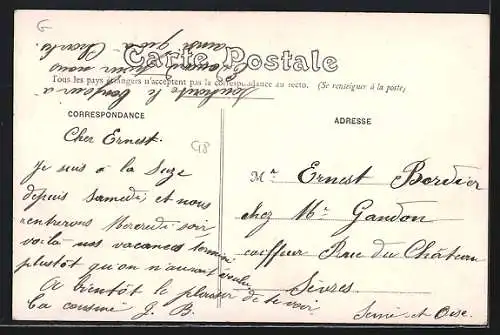 G
Carte Postale
Tous les pays étrangers n'acceptent pas la correspondance au recto. (Se renseigner à la poste)
CORRESPONDANCE
ADRESSE
G8
Cher Ernest.
Je suis à la Suze
depuis Samedi et nous
rentrerons Mercredi soir
voilà nos vacances terminé
plustôt qu'on n'aurait voulu
A bientôt le plaisir de te voir
ta cousine J. B.
Souhaite le bonjour à
Edouard pour nous
ainsi qu'à Charles.
Mr Ernest Bordier
chez Mr Gandon
coiffeur Rue du Château
Sèvres.
Seine et Oise.